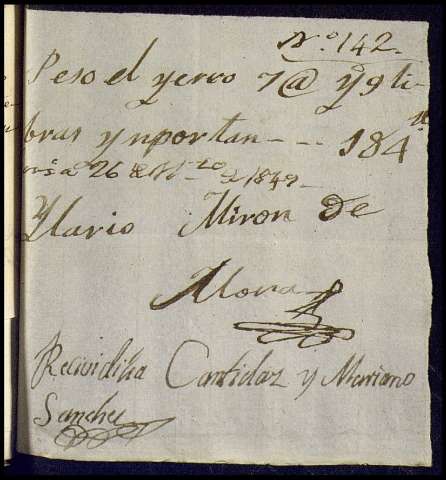 Nº 142.
Peso el yerro 7 @ y 9 li-
bras ynportan - - - 184
26 de 1849
Ylario Miron de
Mora
Recivi dha Cantidaz y Mariano
Sanches